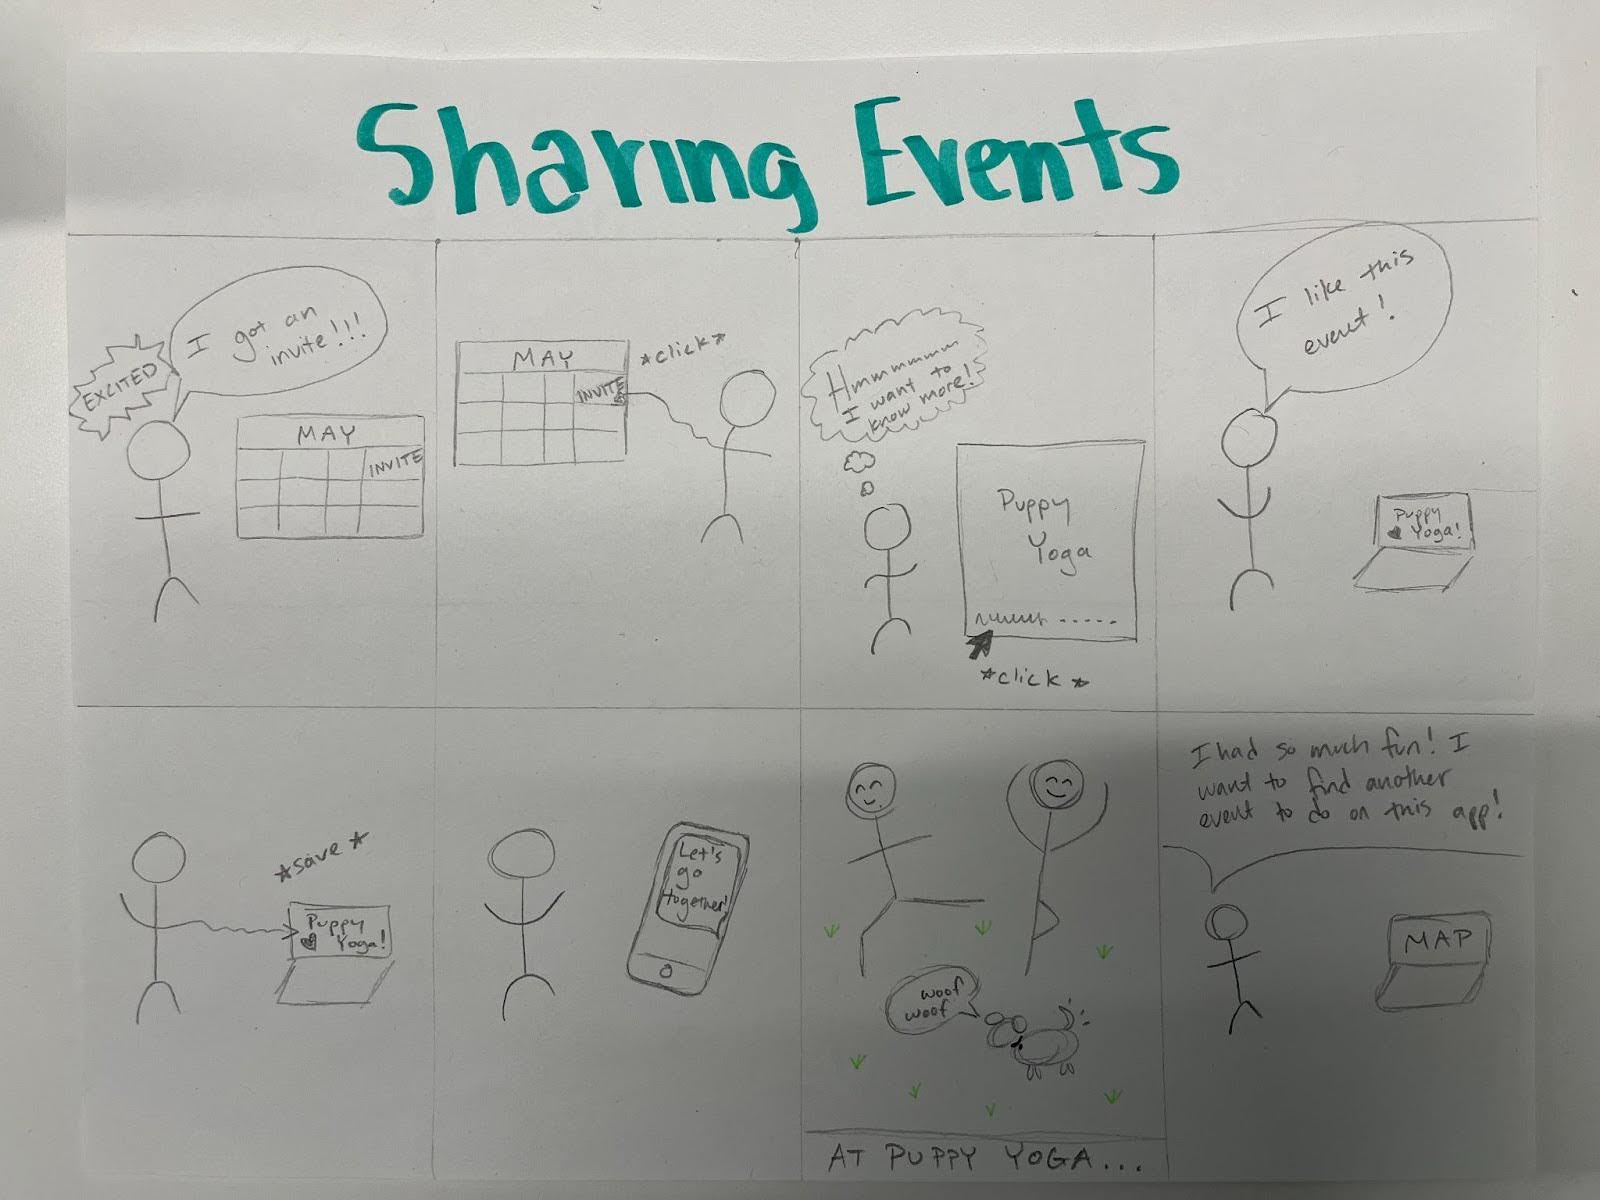 Sharing Events
EXCITED
I got an
invite!!!
MAY
INVITE
MAY
INVITE
*click*
Hmmmmmm
I want to
know more!
Puppy
Yoga
*click*
I like this
event!
Puppy
Yoga!
*save*
Puppy
Yoga!
Let's
go
together!
woof
woof
AT PUPPY YOGA...
I had so much fun! I
want to find another
event to do on this app!
MAP